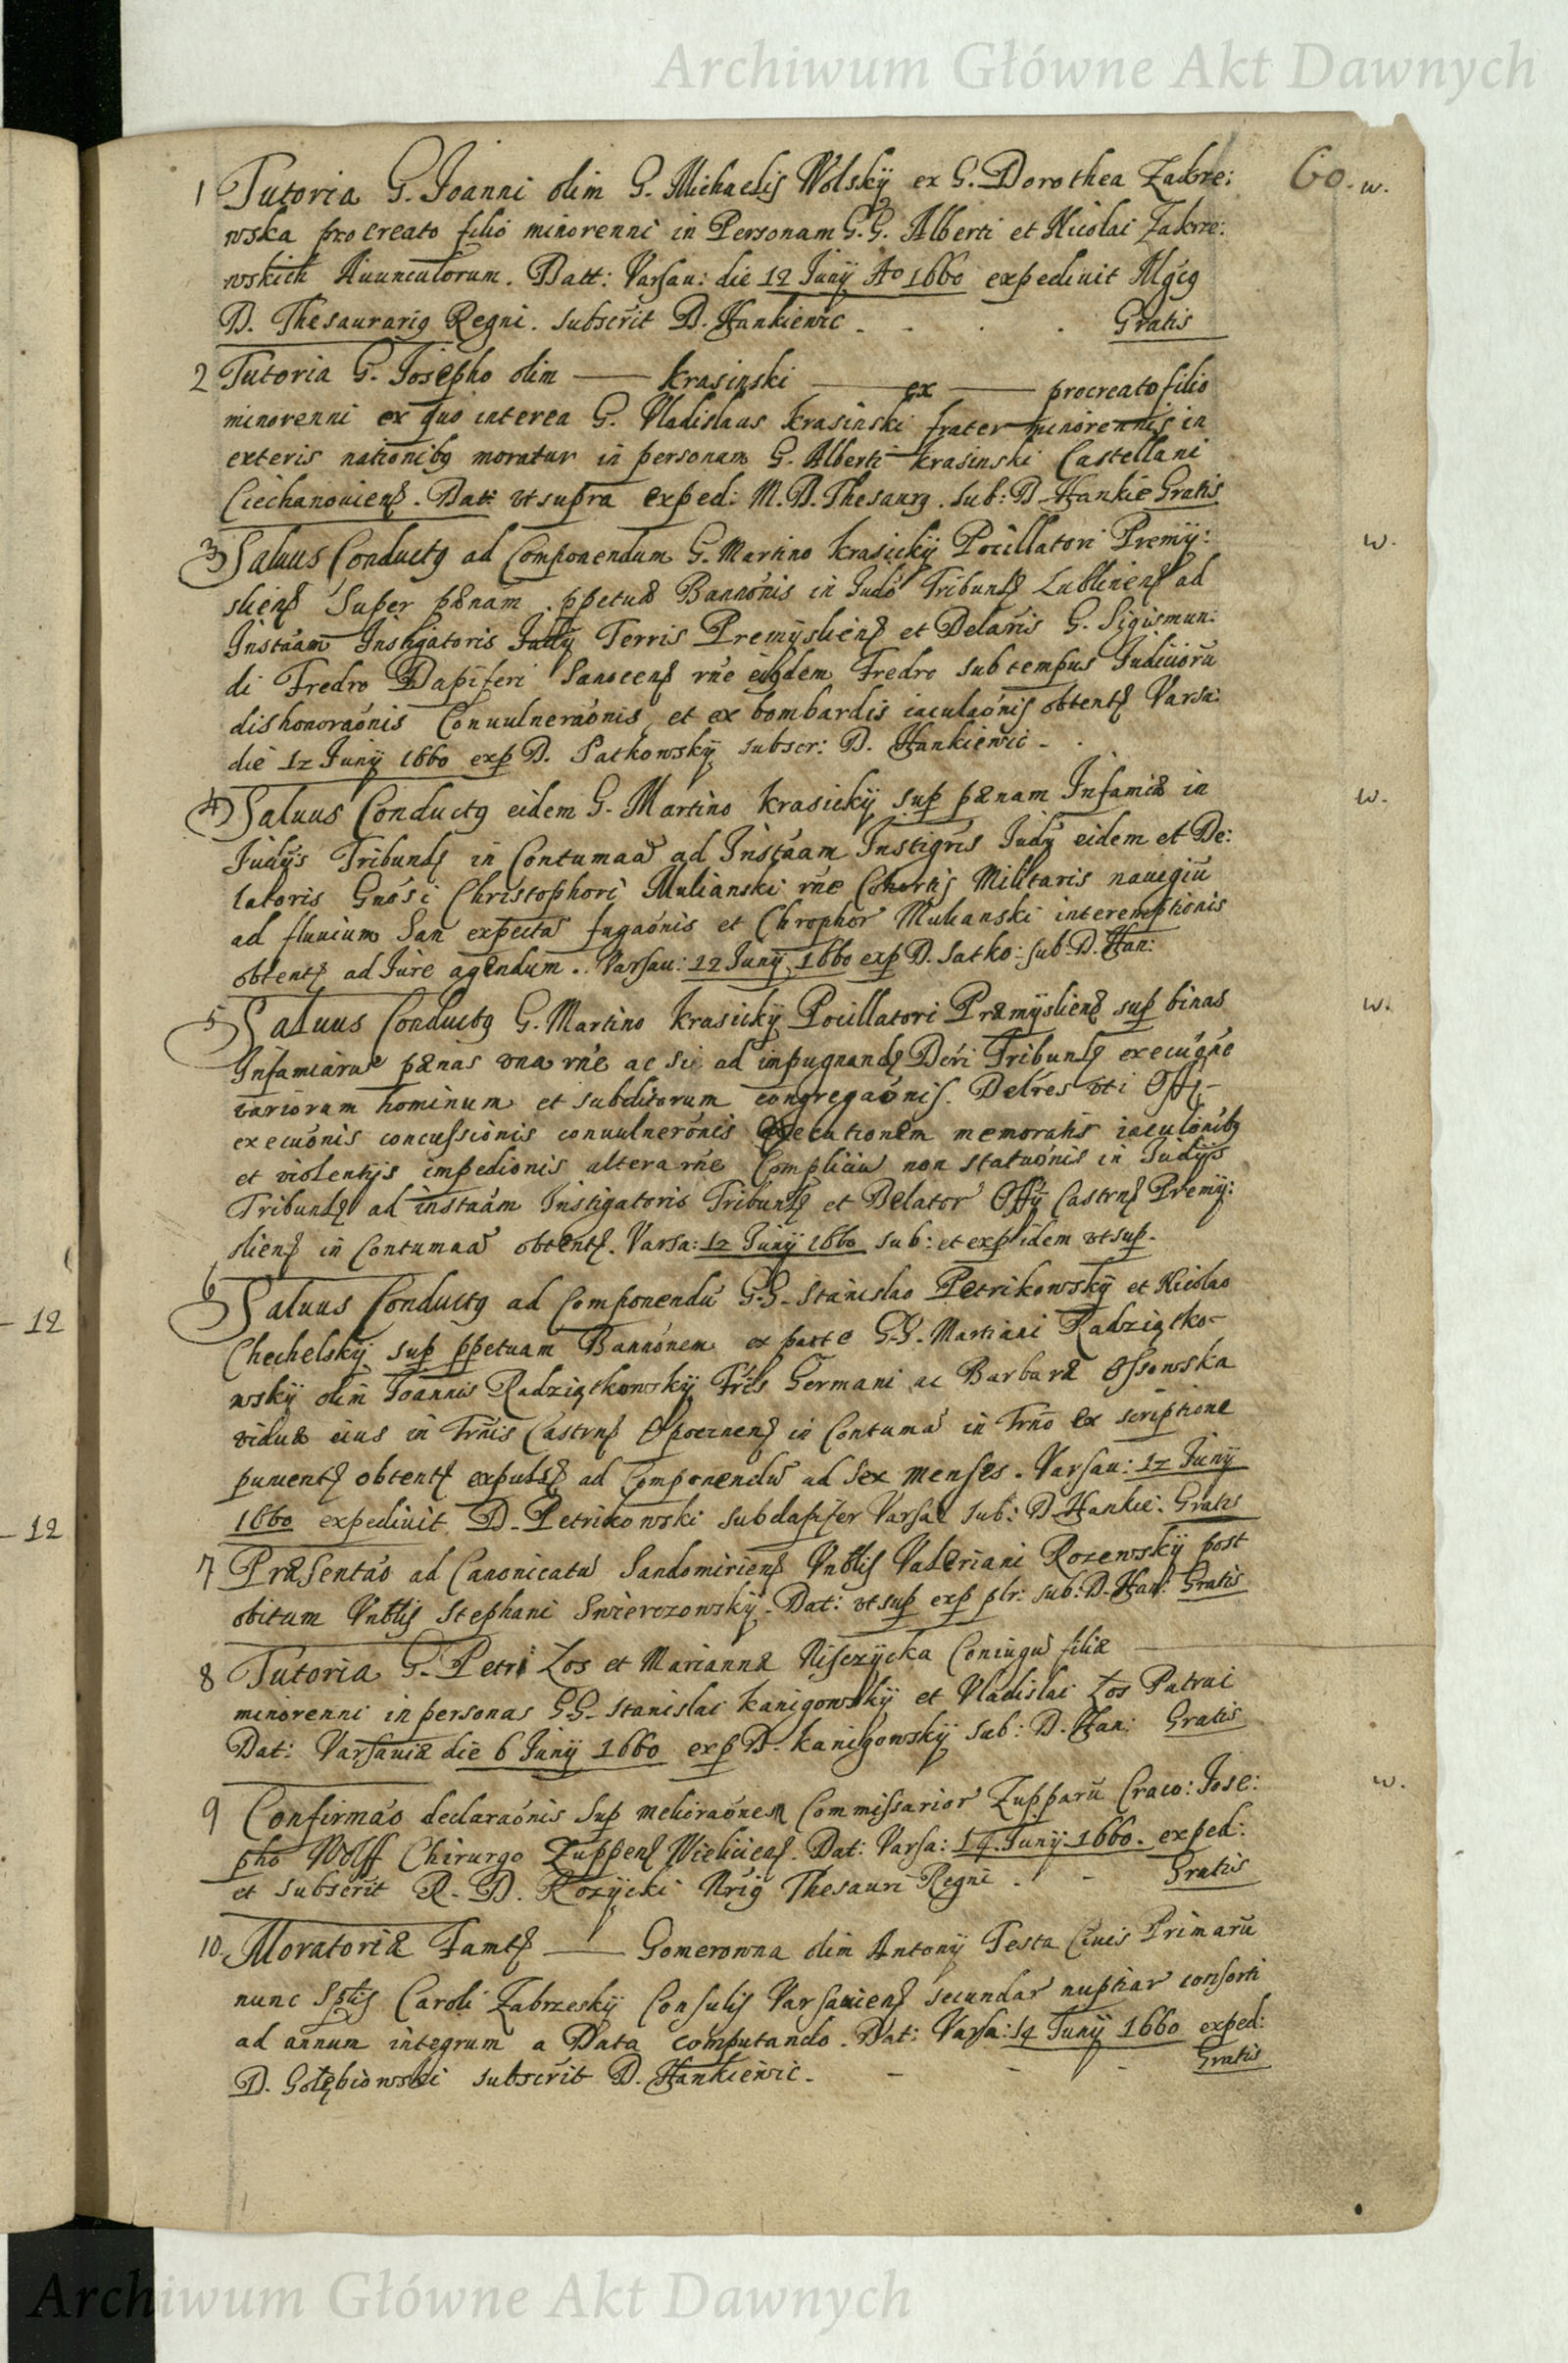 Archiwum Główne Akt Dawnych
60. w.
1 Tutoria G. Joanni olim G. Michaelis Wolskÿ ex G. Dorothea Zakrze:
wska procreato filio minorenni in Personam G.G. Alberti et Nicolai Zakrze:
wskich Auunculorum. Datt: Varsau: die 12 Junÿ Ao 1660 expediuit Mgcg
D. Thesaurarig Regni. subscrit D. Hankiewic - - . . Gratis
2 Tutoria G. Josepho olim —— Krasinski —— ex —— procreato filio
minorenni ex quo interea G. Vladislaus Krasinski frater minorennis in
exteris nationibg moratur in personam G. Alberti Krasinski Castellani
Ciechanouiens. Datt vt supra exped: M. D. Thesaurg. sub: D Hankie Gratis
3 Saluus Conductg ad Componendum G. Martino Krasickÿ Pocillatori Premÿ: w.
sliens Super pænam ppetuæ Bannónis in Judó Tribunls Lubliniens ad
Instaám Instigatoris Terris Premÿsliens et Delaris G. Sigismun:
di Fredro Dapiferi Sanocens rne eiusdem Fredro sub tempus Judicioru
dishonoraónis Conuulneraónis et ex bombardis iaculaónis obtents Varsa:
die 12 Junÿ 1660 exp D. Satkowskÿ subscr: D. Hankiewic - .
4 Saluus Conductg eidem G. Martino Krasickÿ sup pænam Infamiæ in w.
Judÿs Tribunls in Contumaa ad Instáam Instigris Judÿ eidem et De:
latoris Gnósi Christophori Mulianski rne Cohortis Militaris nauigiu
ad fluuium San expecta fugaónis et Chrophor Mulianski interemptionis
obtents ad Jure agendum. Varsau: 12 Junÿ 1660 exp D. Satko: sub D. Han:
5 Saluus Conductg G. Martino Krasickÿ Pocillatori Præmÿsliens sup binas w.
Infamiarue pænas vna rne ac si ad impugnands Dcri Tribunls
variorum hominum et subditorum congregaónis. Delres vti Off-
execuónis concussionis conuulnerónis executionem memoratis iaculónibg
et violentÿs impedionis altera rne Compliciu non statuónis in Judÿs
Tribunls ad instaám Instigatoris Tribunls et Delator Offÿ Castrns Premÿ:
sliens in Contumaa obtents. Varsa: 12 Junÿ 1660 sub: et exp idem vt sup.
6 Saluus Conductg ad Componendu G.G. Stanislao Petrikowskÿ et Nicolao
Chechelskÿ sup ppetuam Bannónem ex parte G.G. Martiani Radziątko-
wskÿ olim Joannis Radziątkowskÿ Fris Germani ac Barbaræ Ossowska
viduæ eius in Trnis Castrns Opocznens in Contuma in Trno ex scriptione
puments obtents expulss ad Componendu ad sex menses. Varsau: 12 Junÿ
1660 expediuit D. Petrikowski subdapifer Varsa sub: D Hankie. Gratis
7 Præsentáo ad Canonicatu Sandomiriens Vnblis Valeriani Rozewskÿ post
obitum Vnblis Stephani Swierczowskÿ. Dat: vt sup exp plr: sub: D. Han: Gratis
8 Tutoria G. Petri Zos et Mariannæ Nisczÿcka Coniugu filiæ ——
minorenni in personas G.G. Stanislai Kanigowskÿ et Vladislai Zos Patrui
Dat: Varsauiæ die 6 Junÿ 1660 exp D. Kanigowskÿ sub: D. Han: Gratis
9 Confirmáo declaraónis sup melioraónem Commissarior Zupparu Craco: Jose: w.
pho Wolff Chirurgo Zuppens Wieliciens. Dat: Varsa: 14 Junÿ 1660. exped:
et subscrit R. D. Rozÿcki Nrig Thesauri Regni . - Gratis
10. Moratoriæ Famts —— Gomerowna olim Antonÿ Testa Ciuis Primaru
nunc Sptis Caroli Zabrzeskÿ Consulis Varsauiens secundar nuptiar consorti
ad annum integrum a Data computando. Dat: Varsa: 14 Junÿ 1660 exped:
D. Gołębiowski subscrit D. Hankiewic. - - - Gratis
- 12
- 12
Archiwum Główne Akt Dawnych